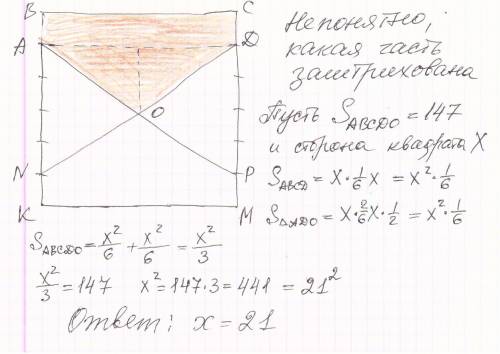 B
C
A
D
O
N
P
K
M
Непонятно,
какая часть
заштрихована
Пусть S_ABCDO = 147
и сторона квадрата X
S_ABCD = X · 1/6 X = X² · 1/6
S_ΔADO = X · 2/6 X · 1/2 = X² · 1/6
S_ABCDO = X²/6 + X²/6 = X²/3
X²/3 = 147 X² = 147 · 3 = 441 = 21²
Ответ: x = 21